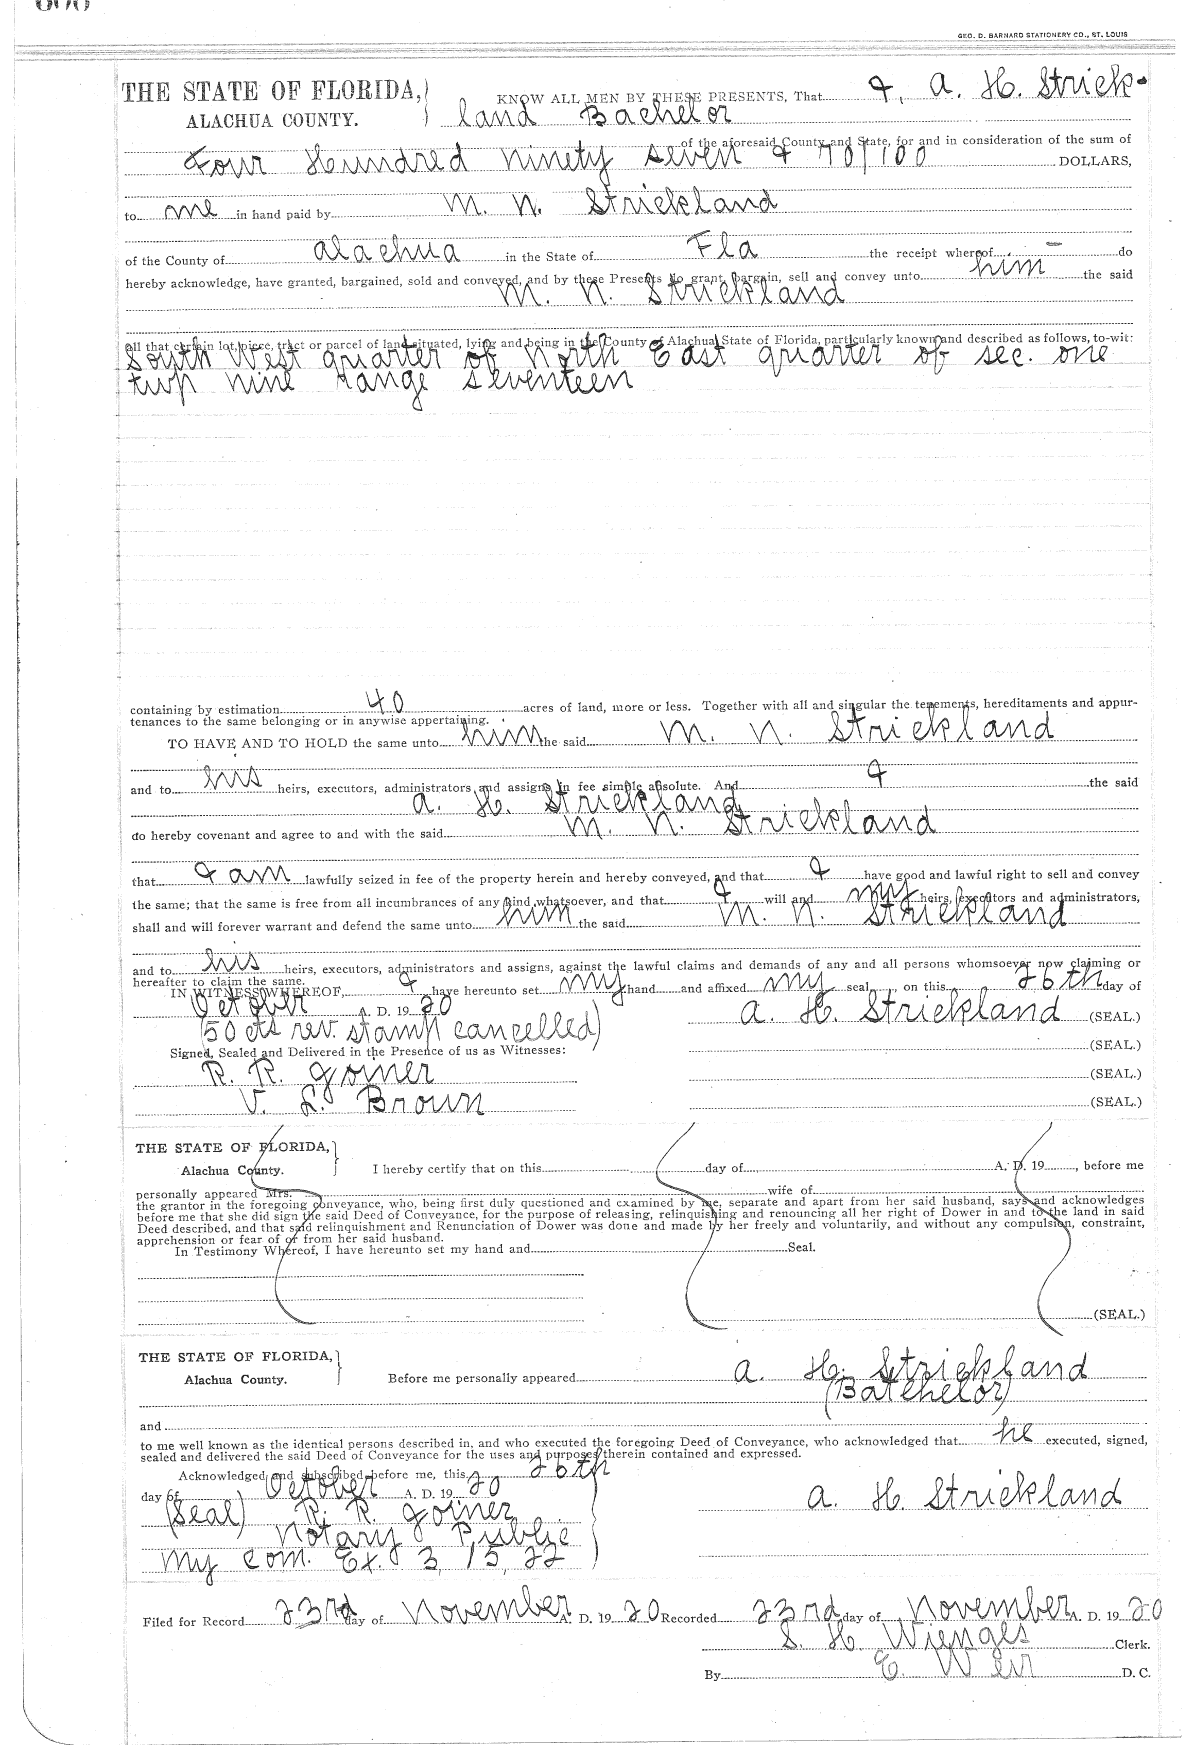 GEO. D. BARNARD STATIONERY CO., ST. LOUIS
THE STATE OF FLORIDA,
ALACHUA COUNTY.
KNOW ALL MEN BY THESE PRESENTS, That I, A. H. Strick-
land Bachelor
of the aforesaid County and State, for and in consideration of the sum of
Four Hundred Ninety Seven & 70/100 DOLLARS,
to me in hand paid by M. N. Strickland
of the County of Alachua in the State of Fla the receipt whereof do
hereby acknowledge, have granted, bargained, sold and conveyed, and by these Presents do grant, bargain, sell and convey unto him the said
M. N. Strickland
all that certain lot, piece, tract or parcel of land situated, lying and being in the County of Alachua State of Florida, particularly known and described as follows, to-wit:
South West quarter of North East quarter of sec. one
twp nine range seventeen
containing by estimation 40 acres of land, more or less. Together with all and singular the tenements, hereditaments and appur-
tenances to the same belonging or in anywise appertaining.
TO HAVE AND TO HOLD the same unto him the said M. N. Strickland
and to his heirs, executors, administrators and assigns in fee simple absolute. And I the said
A. H. Strickland
do hereby covenant and agree to and with the said M. N. Strickland
that I am lawfully seized in fee of the property herein and hereby conveyed, and that I have good and lawful right to sell and convey
the same; that the same is free from all incumbrances of any kind whatsoever, and that I will and my heirs, executors and administrators,
shall and will forever warrant and defend the same unto him the said M. N. Strickland
and to his heirs, executors, administrators and assigns, against the lawful claims and demands of any and all persons whomsoever now claiming or
hereafter to claim the same.
IN WITNESS WHEREOF, I have hereunto set my hand and affixed my seal, on this 26th day of
October A. D. 19 20 A. H. Strickland (SEAL.)
(50 cts rev. stamp cancelled)
(SEAL.)
Signed, Sealed and Delivered in the Presence of us as Witnesses:
R. R. Joiner (SEAL.)
V. L. Brown (SEAL.)
THE STATE OF FLORIDA,
Alachua County. I hereby certify that on this day of A. D. 19 , before me
personally appeared Mrs. wife of
the grantor in the foregoing conveyance, who, being first duly questioned and examined by me, separate and apart from her said husband, says and acknowledges
before me that she did sign the said Deed of Conveyance, for the purpose of releasing, relinquishing and renouncing all her right of Dower in and to the land in said
Deed described, and that said relinquishment and Renunciation of Dower was done and made by her freely and voluntarily, and without any compulsion, constraint,
apprehension or fear of or from her said husband.
In Testimony Whereof, I have hereunto set my hand and Seal.
(SEAL.)
THE STATE OF FLORIDA,
Alachua County. Before me personally appeared A. H. Strickland
(Batchelor)
and
to me well known as the identical persons described in, and who executed the foregoing Deed of Conveyance, who acknowledged that he executed, signed,
sealed and delivered the said Deed of Conveyance for the uses and purposes therein contained and expressed.
Acknowledged and subscribed before me, this 26th
day of October A. D. 19 20
(Seal) R. R. Joiner A. H. Strickland
Notary Public
My com. Ex. 3, 15, 22
Filed for Record 23rd day of November A. D. 19 20 Recorded 23rd day of November A. D. 19 20
S. H. Wienges Clerk.
By E. Weir D. C.